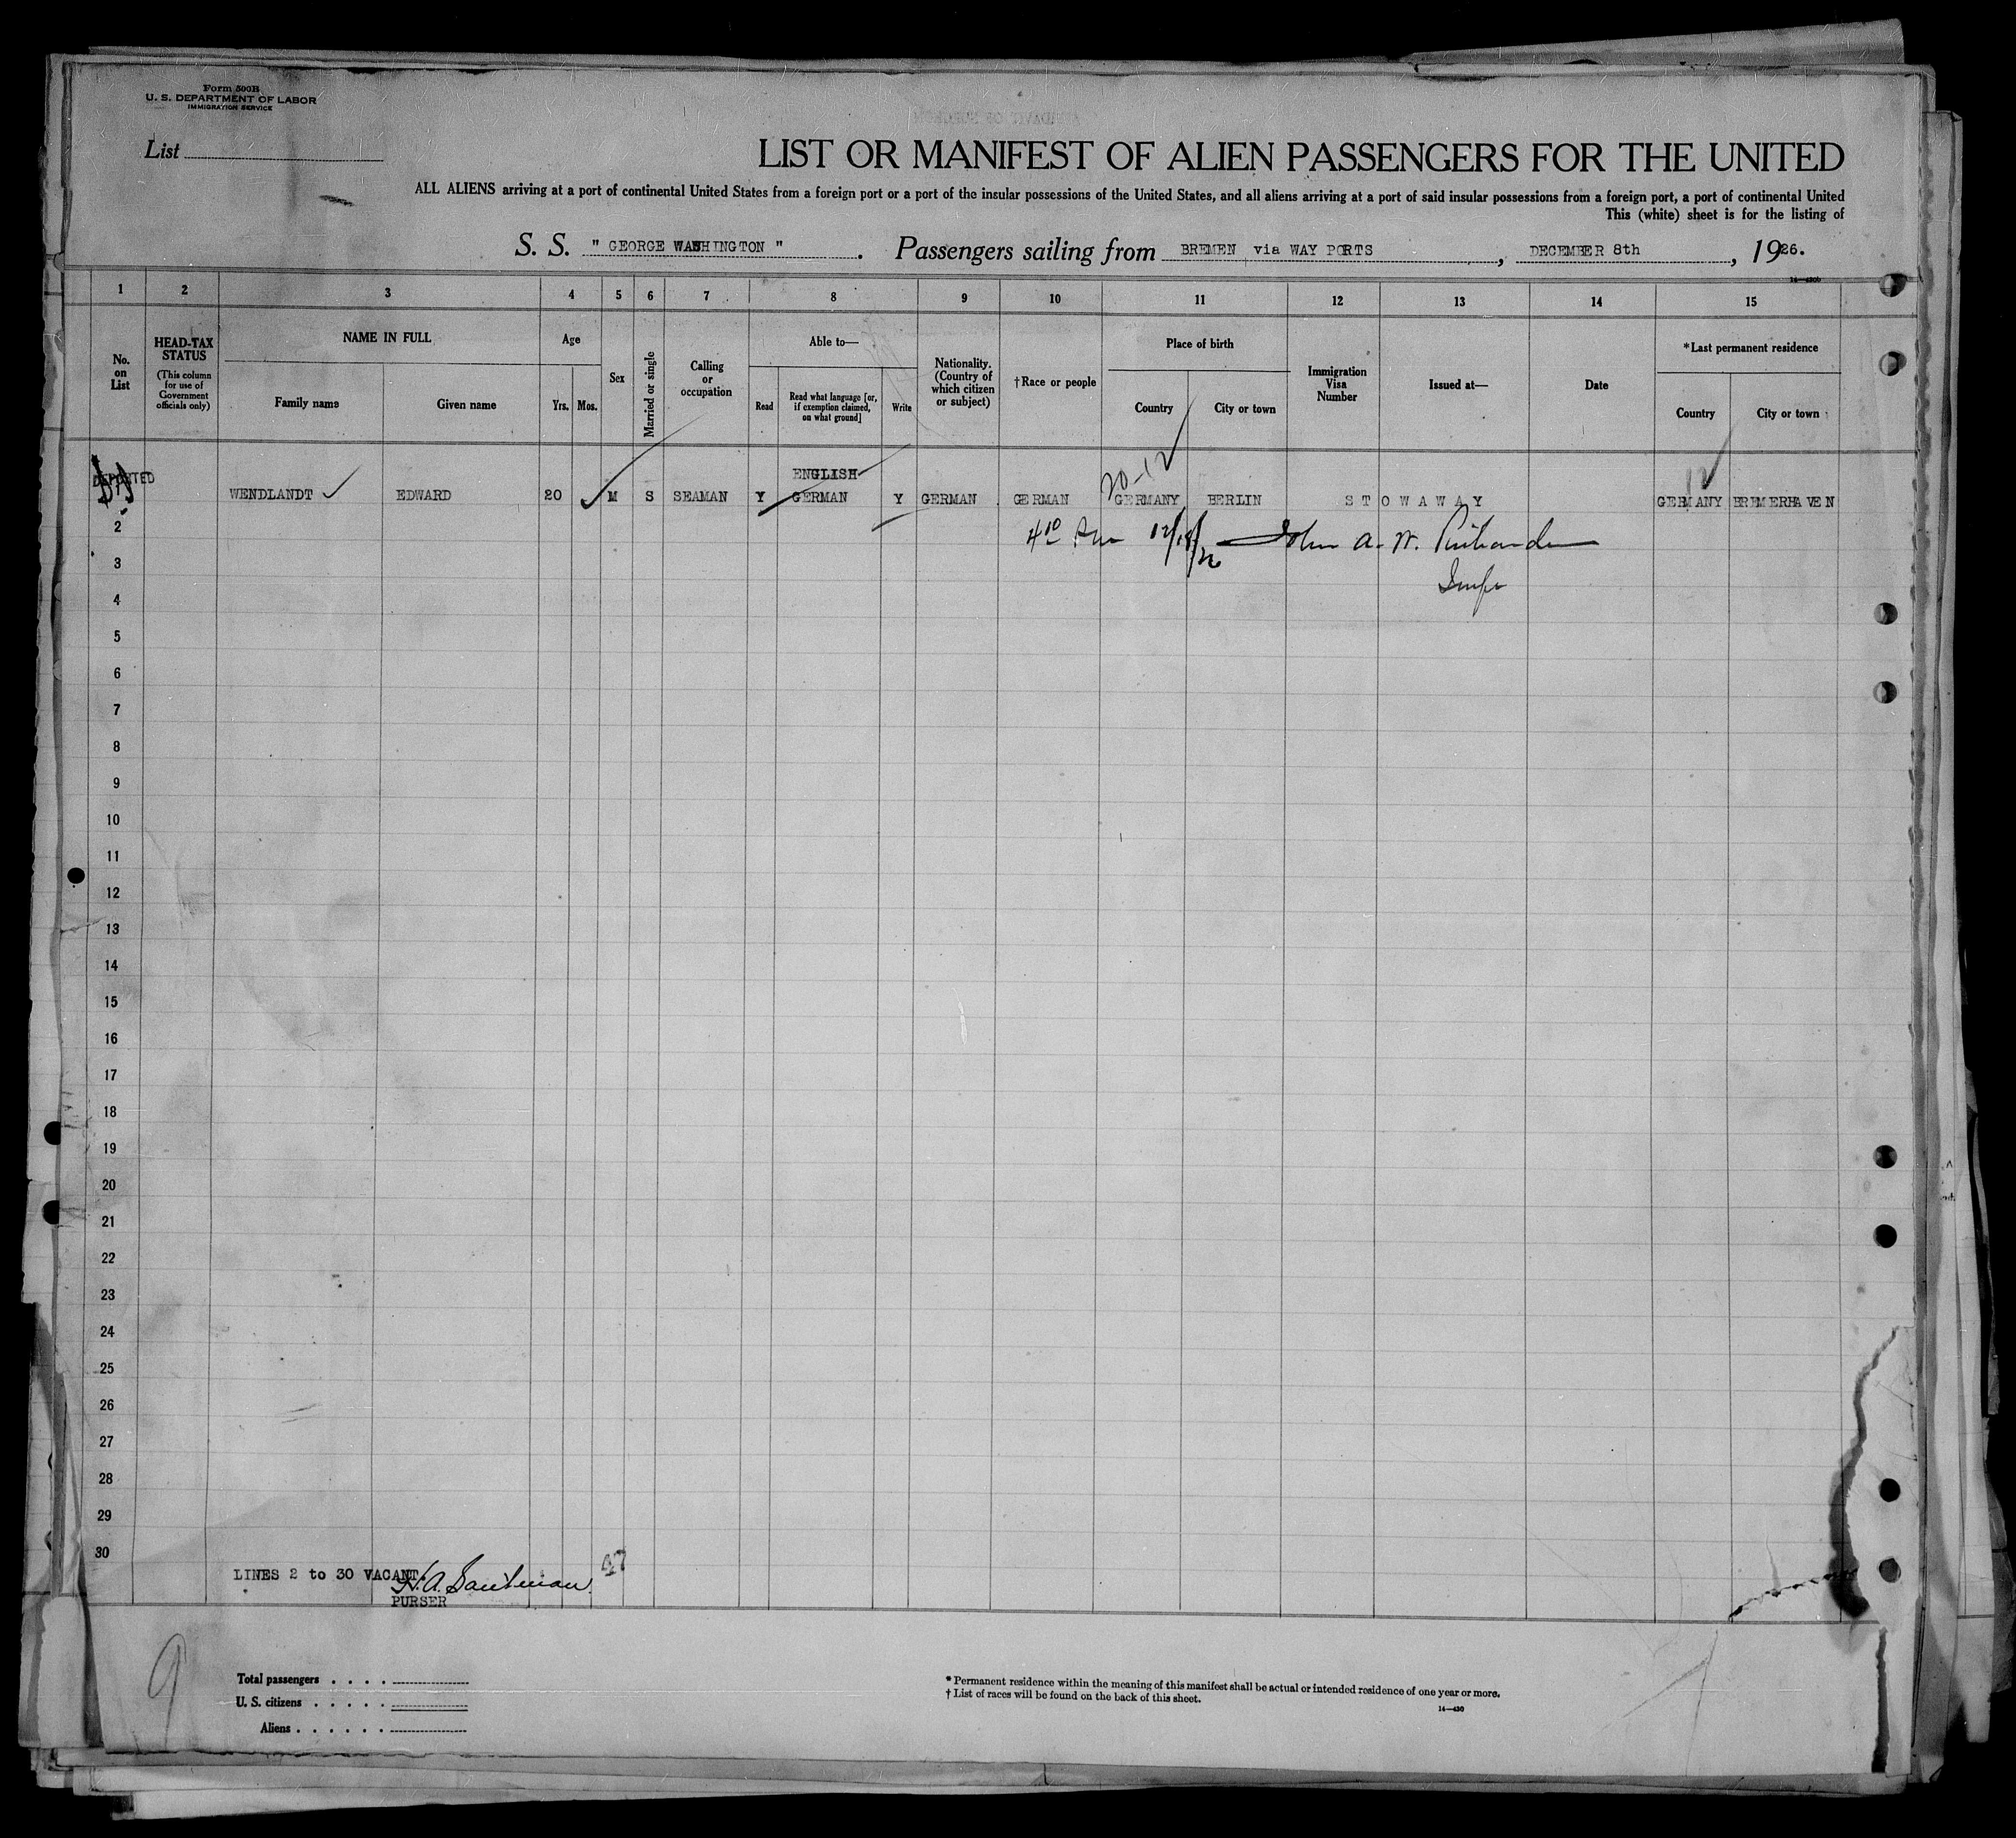 Form 500B
U. S. DEPARTMENT OF LABOR
IMMIGRATION SERVICE
List
LIST OR MANIFEST OF ALIEN PASSENGERS FOR THE UNITED
ALL ALIENS arriving at a port of continental United States from a foreign port or a port of the insular possessions of the United States, and all aliens arriving at a port of said insular possessions from a foreign port, a port of continental United
This (white) sheet is for the listing of
S. S. " GEORGE WASHINGTON " . Passengers sailing from BREMEN via WAY PORTS , DECEMBER 8th , 1926.
14—430b
1 2 3 4 5 6 7 8 9 10 11 12 13 14 15
No. on List
HEAD-TAX STATUS
(This column for use of Government officials only)
NAME IN FULL
Family name Given name
Age
Yrs. Mos.
Sex
Married or single
Calling or occupation
Able to—
Read
Read what language [or, if exemption claimed, on what ground]
Write
Nationality. (Country of which citizen or subject)
†Race or people
Place of birth
Country City or town
Immigration Visa Number
Issued at—
Date
*Last permanent residence
Country City or town
DEPORTED
ENGLISH
20-12
12
WENDLANDT EDWARD 20 M S SEAMAN Y GERMAN Y GERMAN GERMAN GERMANY BERLIN S T O W A W A Y GERMANY BREMERHAVEN
2
12/18/26 John A. W.
3
Insp
4
5
6
7
8
9
10
11
12
13
14
15
16
17
18
19
20
21
22
23
24
25
26
27
28
29
30
LINES 2 to 30 VACANT.
47
PURSER
9
Total passengers . . . .
U. S. citizens . . . . .
Aliens . . . . . .
* Permanent residence within the meaning of this manifest shall be actual or intended residence of one year or more.
† List of races will be found on the back of this sheet.
14—430